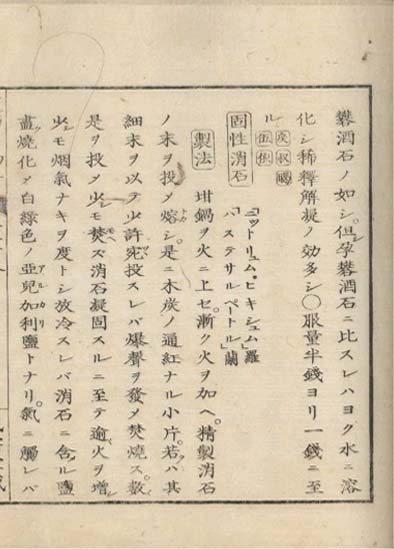 礬酒石ノ如シ。但シ孕礬酒石ニ比スレハヨク水ニ溶
化シ稀釋解凝ノ効多シ〇服量半錢ヨリ一錢ニ至
ル
固性消石
「ニットリュム。ヒキシュム」羅
「バステサルペートル」蘭
製法 坩鍋ヲ火ニ上セ。漸ク火ヲ加ヘ。精製消石
ノ末ヲ投メ熔シ。是ニ木炭ノ通紅ナル小片。若ハ其
細末ヲ以テ少許宛投スレバ爆聲ヲ發メ焚燒ス。數
是ヲ投メ少モ焚ズ消石凝固スルニ至テ逾火ヲ増
少モ烟氣ナキヲ度トシ放冷スレバ消石ニ含ル鹽
盡燒化メ白綠色ノ亜兒加利鹽トナリ。氣ニ觸レバ